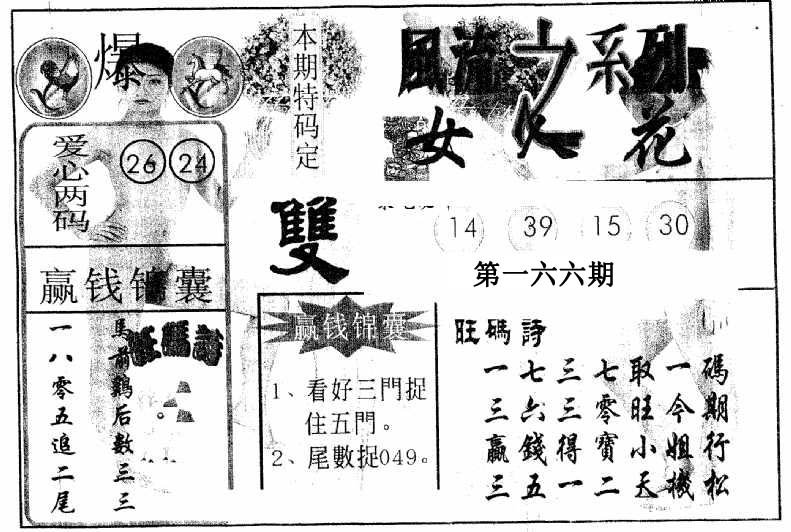 爆
本期特码定
雙
风流之系列
女人花
爱心两码
26 24
14 39 15 30
第一六六期
赢钱锦囊
旺碼詩
馬前鷄后數三三
一八零五追二尾
赢钱锦囊
1、看好三門捉
住五門。
2、尾數捉049。
旺碼詩
一七三七取一碼
三六三零旺今期
贏錢得寶小姐行
三五一二天機松